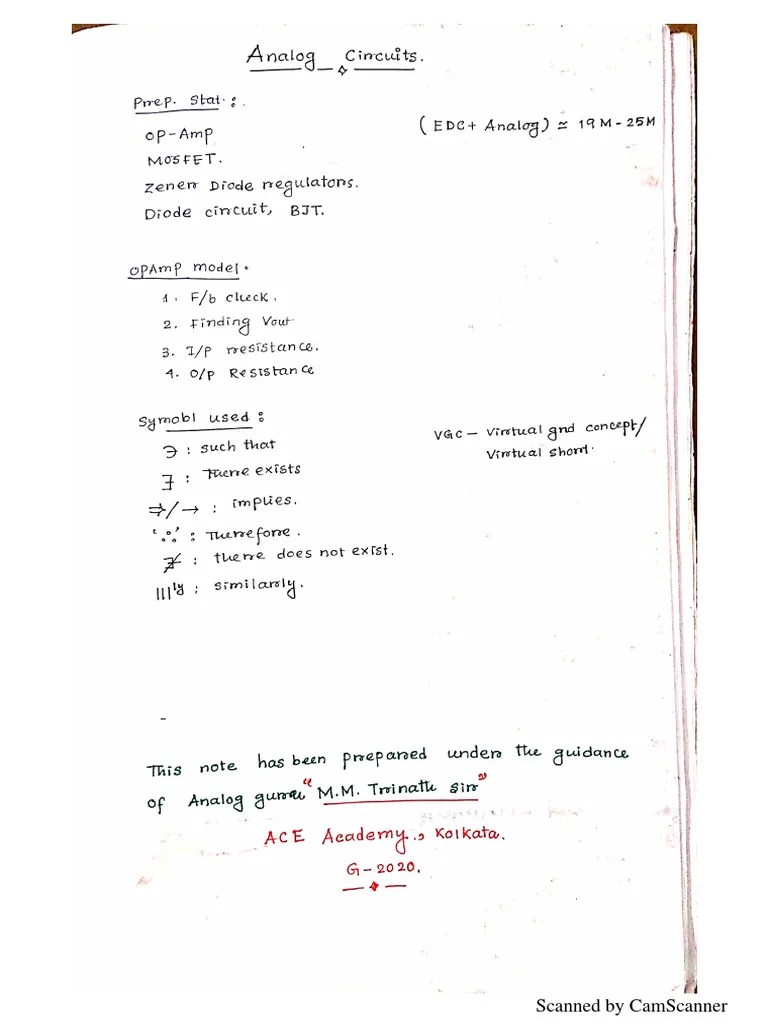 Analog Circuits.
Prep. Stat :.
OP-Amp
(EDC + Analog) ≃ 19 M - 25M
MOSFET.
Zener Diode regulators.
Diode circuit, BJT.
OPAmp model.
1. F/b check.
2. Finding Vout
3. I/P resistance.
4. O/p Resistance
Symobl used :
∋ : such that
VGC - Virtual gnd concept/
Virtual short.
∃ : There exists
⇒/→ : implies.
'∴' : Therefore.
∄ : there does not exist.
|||ly : similarly.
This note has been prepared under the guidance
of Analog guru "M.M. Trinath sir"
ACE Academy., Kolkata.
G-2020.
Scanned by CamScanner